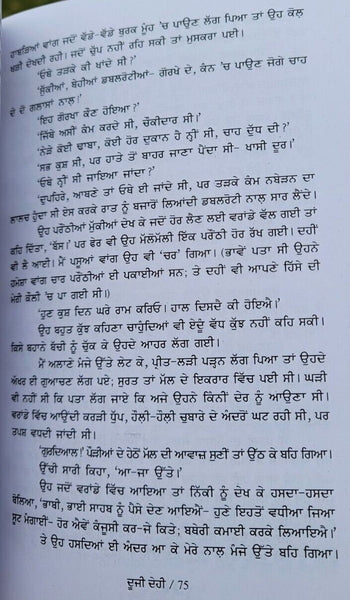 ਹਾਬੜਿਆਂ ਵਾਂਗ ਜਦੋਂ ਵੱਡੇ-ਵੱਡੇ ਬੁਰਕ ਮੂੰਹ 'ਚ ਪਾਉਣ ਲੱਗ ਪਿਆ ਤਾਂ ਉਹ ਕੋਲ
ਖੜੀ ਦੇਖਦੀ ਰਹੀ। ਜਦੋਂ ਚੁੱਪ ਨਹੀਂ ਰਹਿ ਸਕੀ ਤਾਂ ਮੁਸਕਰਾ ਪਈ।
'ਓਥੇ ਤੜਕੇ ਕੀ ਖਾਂਦੇ ਸੀ?'
'ਸੁੱਕੀਆਂ, ਬੇਹੀਆਂ ਡਬਲਰੋਟੀਆਂ- ਗੋਰਖੇ ਦੇ, ਕੰਨ 'ਚ ਪਾਉਣ ਜੋਗੇ ਚਾਹ
ਦੇ ਦੋ ਗਲਾਸਾਂ ਨਾਲ਼?'
'ਇਹ ਗੋਰਖਾ ਕੌਣ ਹੋਇਆ?'
'ਜਿੱਥੇ ਅਸੀਂ ਕੰਮ ਕਰਦੇ ਸੀ, ਚੌਕੀਦਾਰ ਸੀ।'
'ਨੇੜੇ ਕੋਈ ਢਾਬਾ, ਕੋਈ ਹੋਰ ਦੁਕਾਨ ਹੈ ਨ੍ਹੀਂ ਸੀ, ਚਾਹ ਦੁੱਧ ਦੀ?'
'ਸਭ ਕੁਸ਼ ਸੀ, ਪਰ ਹਾਤੇ ਤੋਂ ਬਾਹਰ ਜਾਣਾ ਪੈਂਦਾ ਸੀ- ਖਾਸੀ ਦੂਰ।'
'ਓਥੇ ਨ੍ਹੀਂ ਸੀ ਜਾਇਆ ਜਾਂਦਾ?'
'ਦੁਪਹਿਰੇ, ਆਥਣੇ ਤਾਂ ਓਥੇ ਈ ਜਾਂਦੇ ਸੀ, ਪਰ ਤੜਕੇ ਕੰਮ ਨਬੇੜਨ ਦਾ
ਲਾਲਚ ਹੁੰਦਾ ਸੀ ਏਸ ਕਰਕੇ ਰਾਤ ਨੂੰ ਬਜਾਰੋਂ ਲਿਆਂਦੀ ਡਬਲਰੋਟੀ ਨਾਲ ਸਾਰ ਲੈਂਦੇ।
ਉਹ ਪਰੌਂਠੀਆਂ ਮੁੱਕੀਆਂ ਦੇਖ ਕੇ ਜਦੋਂ ਹੋਰ ਲੈਣ ਲਈ ਵਰਾਂਡੇ ਵੱਲ ਗਈ ਤਾਂ
ਕਹਿ ਦਿੱਤਾ, 'ਬੱਸ।' ਪਰ ਫੇਰ ਵੀ ਉਹ ਮੱਲੋਮੱਲੀ ਇੱਕ ਪਰੌਂਠੀ ਹੋਰ ਰੱਖ ਗਈ। ਦਹੀਂ
ਵੀ ਲੈ ਆਈ। ਮੈਂ ਪਸ਼ੂਆਂ ਵਾਂਗ ਉਹ ਵੀ 'ਚਰ' ਗਿਆ। (ਭਾਵੇਂ ਪਤਾ ਸੀ ਉਹਨੇ
ਹਮੇਸ਼ਾ ਵਾਂਗ ਚਾਰ ਪਰੌਂਠੀਆਂ ਈ ਪਕਾਈਆਂ ਸਨ; ਤੇ ਦਹੀਂ ਵੀ ਆਪਣੇ ਹਿੱਸੇ ਦੀ
ਮੇਰੀ ਕੌਲੀ 'ਚ ਪਾ ਗਈ ਸੀ।)
'ਹੁਣ ਕੁਸ਼ ਦਿਨ ਘਰੇ ਰਾਮ ਕਰਿਓ। ਹਾਲ ਦਿਸਦੈ ਕੀ ਹੋਇਐ।'
ਉਹ ਬਹੁਤ ਕੁੱਝ ਕਹਿਣਾ ਚਾਹੁੰਦਿਆਂ ਵੀ ਏਦੂੰ ਵੱਧ ਕੁੱਝ ਨਹੀਂ ਕਹਿ ਸਕੀ।
ਕਿਸੇ ਬਹਾਨੇ ਬੰਚੀ ਨੂੰ ਚੁੱਕ ਕੇ ਉਹਦੇ ਆਹਰ ਲੱਗ ਗਈ।
ਮੈਂ ਅਲਾਣੇ ਮੰਜੇ ਉੱਤੇ ਲੇਟ ਕੇ, ਪ੍ਰੀਤ-ਲੜੀ ਪੜ੍ਹਨ ਲੱਗ ਪਿਆ ਤਾਂ ਉਹਦੇ
ਅੱਖਰ ਈ ਗੁਆਚਣ ਲੱਗ ਪਏ; ਸੁਰਤ ਤਾਂ ਮੱਲ ਦੇ ਇਕਰਾਰ ਵਿੱਚ ਪਈ ਸੀ। ਘੜੀ
ਵੀ ਨਹੀਂ ਸੀ ਕਿ ਪਤਾ ਲੱਗ ਜਾਏ ਕਿ ਅਜੇ ਉਹਨੇ ਕਿੰਨੀ ਦੇਰ ਨੂੰ ਆਉਣਾ ਸੀ।
ਵਰਾਂਡੇ ਵਿੱਚ ਆਉਂਦੀ ਕਰੜੀ ਧੁੱਪ, ਹੌਲ਼ੀ-ਹੌਲ਼ੀ ਚੁਬਾਰੇ ਦੇ ਅੰਦਰੋਂ ਘਟ ਰਹੀ ਸੀ, ਪਰ
ਤਪਸ਼ ਵਧਦੀ ਜਾਂਦੀ ਸੀ।
'ਗੁਰਦਿਆਲ।' ਪੌੜੀਆਂ ਦੇ ਹੇਠੋਂ ਮੱਲ ਦੀ ਆਵਾਜ਼ ਸੁਣੀ ਤਾਂ ਉੱਠ ਕੇ ਬਹਿ ਗਿਆ।
ਉੱਚੀ ਸਾਰੀ ਕਿਹਾ, 'ਆ-ਜਾ ਉੱਤੇ।'
ਉਹ ਜਦੋਂ ਵਰਾਂਡੇ ਵਿੱਚ ਆਇਆ ਤਾਂ ਨਿੱਕੀ ਨੂੰ ਦੇਖ ਕੇ ਹਸਦਾ-ਹਸਦਾ
ਬੋਲਿਆ, 'ਭਾਬੀ, ਭਾਈ ਸਾਹਬ ਨੂੰ ਪੈਸੇ ਦੇਣ ਆਇਐਂ- ਹੁਣੇ ਇਹਤੋਂ ਵਧੀਆ ਜਿਆ
ਸੂਟ ਮੰਗਾਈਂ- ਹੋਰ ਐਵੇਂ ਕੰਜੂਸੀ ਕਰ-ਜੇਂ ਕਿਤੇ; ਬਥੇਰੀ ਕਮਾਈ ਕਰਕੇ ਲਿਆਇਐ।'
ਤੇ ਉਹ ਹਸਦਿਆਂ ਈ ਅੰਦਰ ਆ ਕੇ ਮੇਰੇ ਨਾਲ਼ ਮੰਜੇ ਉੱਤੇ ਬਹਿ ਗਿਆ।
ਦੂਜੀ ਦੇਹੀ / 75